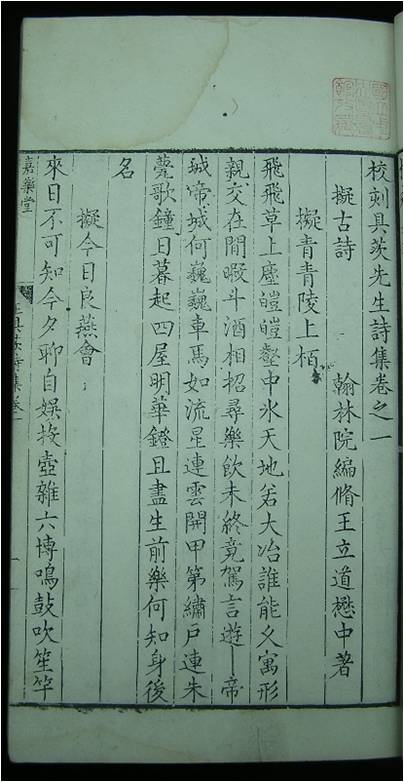 校刻具茨先生詩集卷之一
擬古詩 翰林院編脩王立道懋中著
擬青青陵上栢
飛飛草上塵皚皚壑中氷天地若大冶誰能久寓形
親交在閒暇斗酒相招尋樂飲未終竟駕言遊帝
城帝城何巍巍車馬如流星連雲開甲第繡戶連朱
甍歌鐘日暮起四屋明華鐙且盡生前樂何知身後
名
擬今日良燕會
來日不可知今夕聊自娛投壺雜六博鳴鼓吹笙竽
嘉樂堂